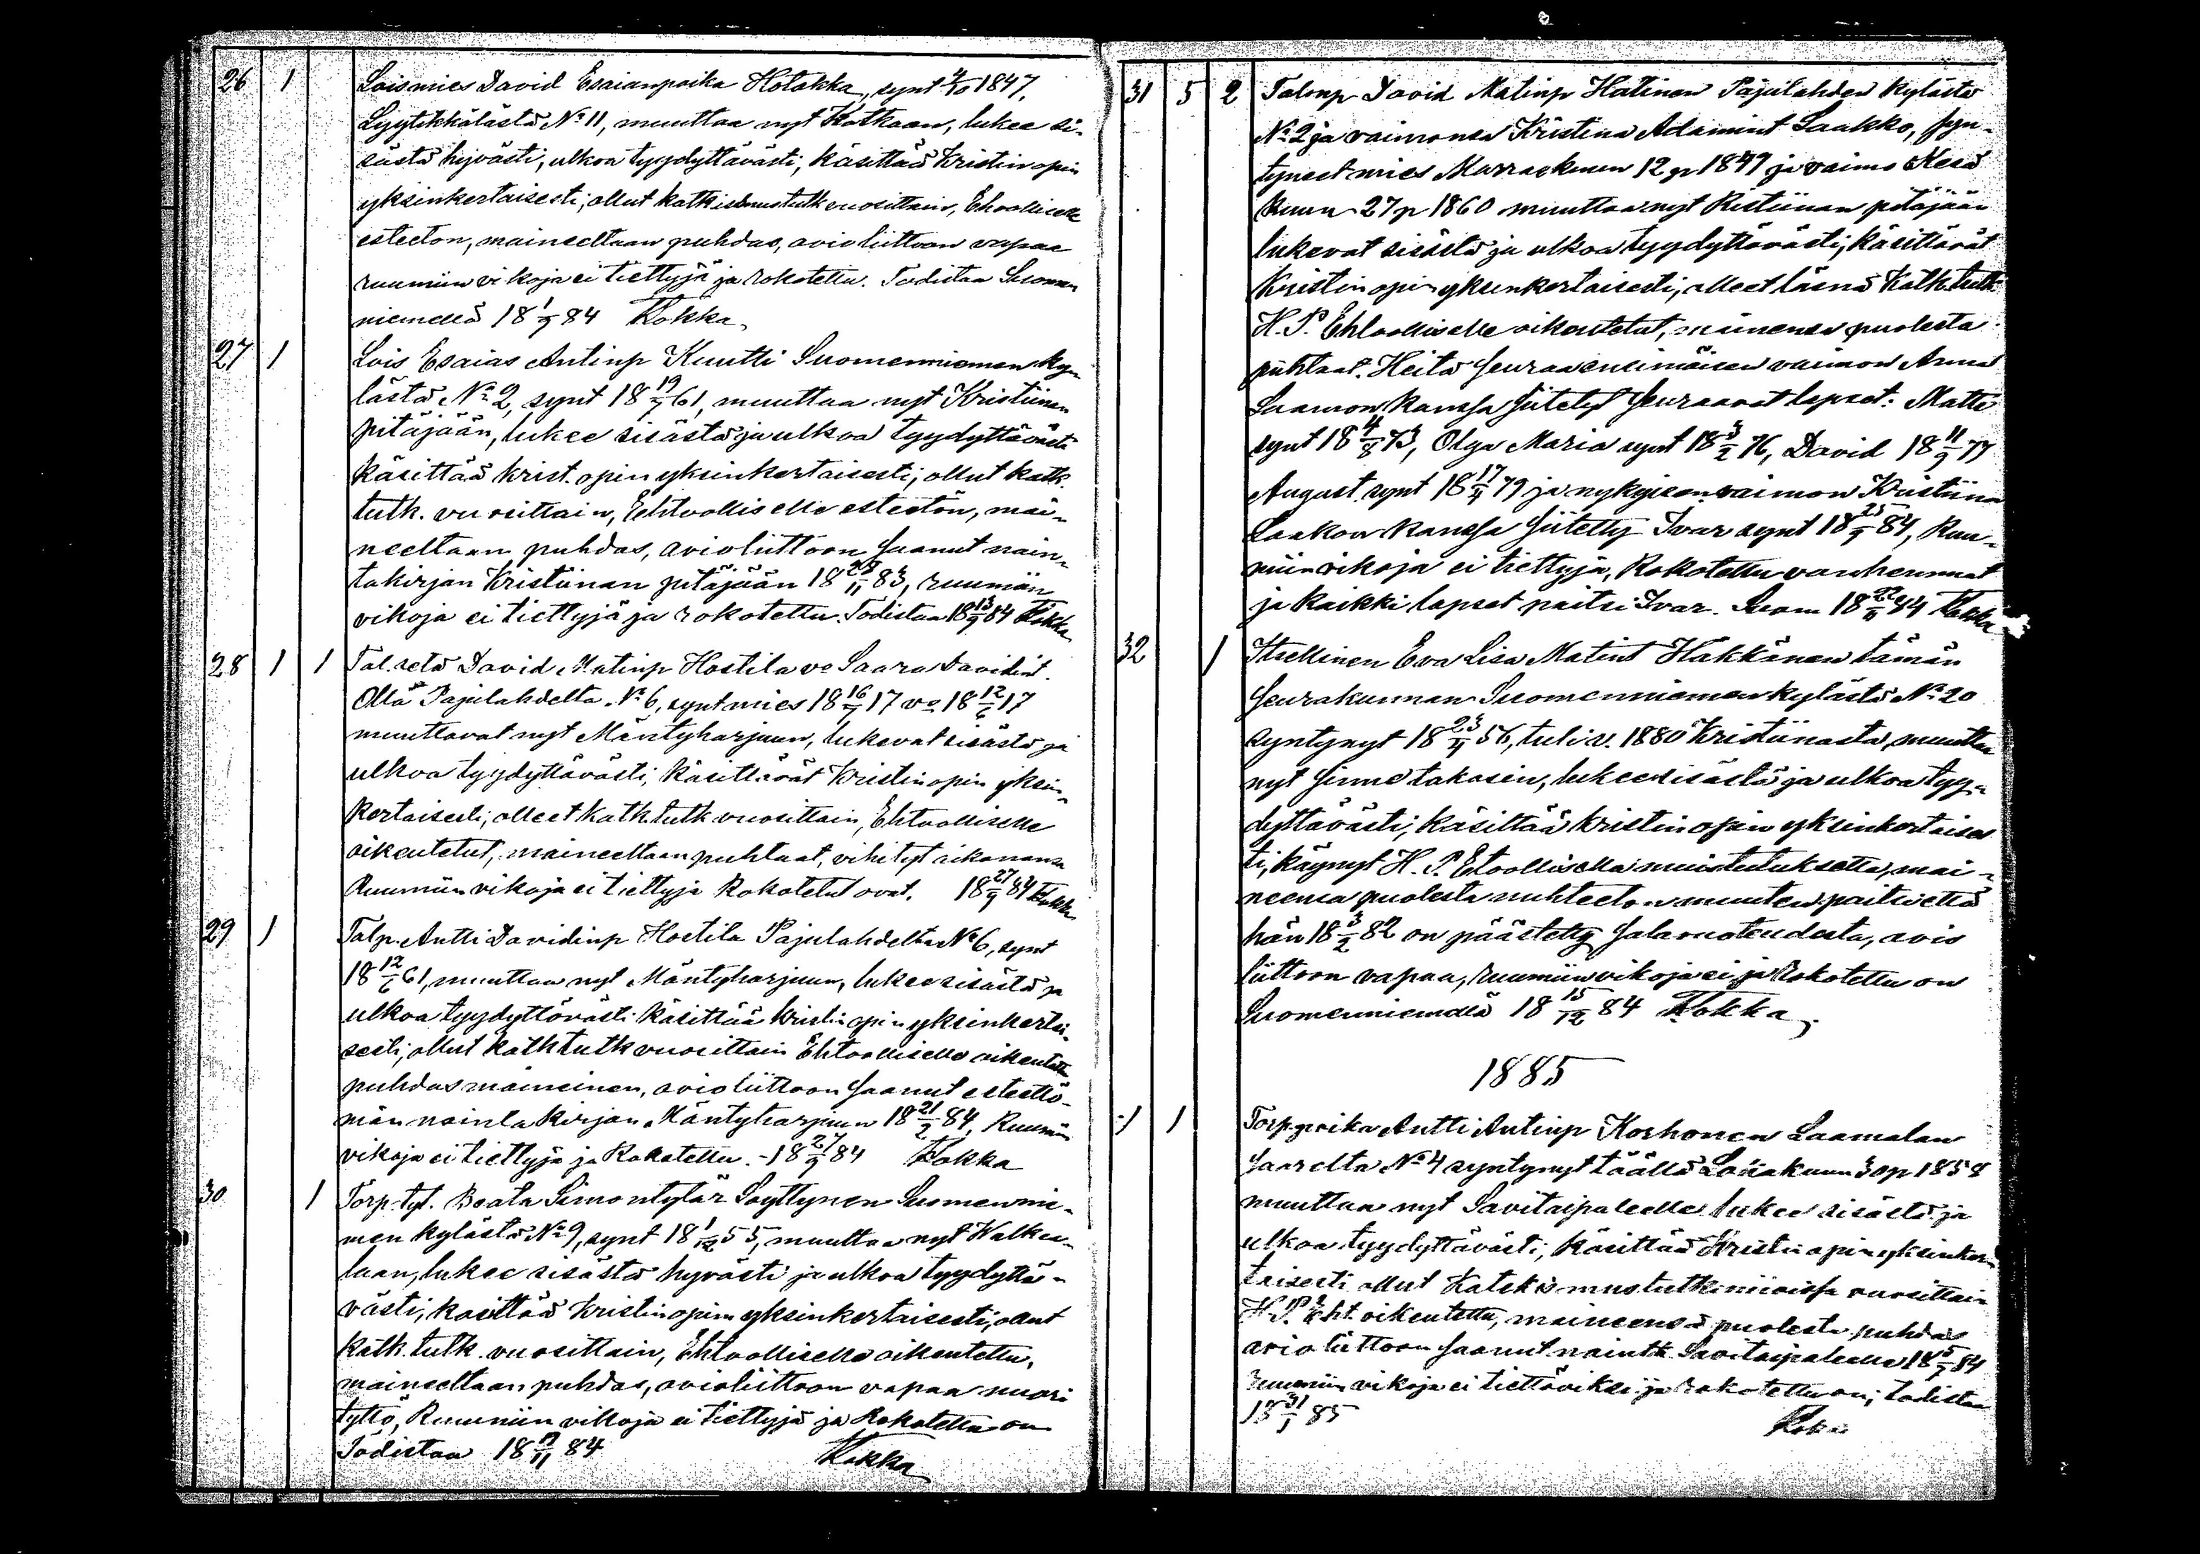 26 1 Loismies David Esaianpoika Hotakka, synt 4/10 1847,
Lyytikkälästä No 11, muuttaa nyt Kotkaan, lukee si-
sästä hyvästi, ulkoa tyydyttävästi, käsittää Kristin opin
yksinkertaisesti, ollut katkismustutk vuosittain, Ehtoolliselle
esteetön, maineeltaan puhdas, avioliittoon vapaa
ruumiin vikoja ei tiettyjä ja rokotettu. Todistaa Suomen
niemellä 18 1/9 84 Kokka,
27 1 Lois Esaias Antinp Kuutti Suomenniemen ky-
lästä No 2, synt 18 19/7 61, muuttaa nyt Kristiinan
pitäjään, lukee sisästä ja ulkoa tyydyttävästi
käsittää krist. opin yksinkertaisesti, ollut katk.
tutk. vuosittain, Ehtoolliselle esteetön, mai-
neeltaan puhdas, avioliittoon saanut nain-
takirjan Kristiinan pitäjään 18 25/11 83, ruumiin
vikoja ei tiettyjä ja rokotettu. Todistaa 18 13/9 84 Kokka
28 1 1 Tal. setä David Matinp Hostila vo Saara Davidint.
Ollä Pajulahdelta No 6, synt mies 18 16/7 17 vo 18 12/6 17
muuttavat nyt Mäntyharjuun, lukevat sisästä ja
ulkoa tyydyttävästi, käsittävät Kristin opin yksin-
kertaisesti, olleet katk. tutk vuosittain, Ehtoolliselle
oikeutetut, maineeltaan puhtaat, vihityt aikanansa
Ruumiin vikoja ei tiettyjä Rokotetut ovat. 18 27/9 84 Kokka
29 1 Talp. Antti Davidinp Hostila Pajulahdelta No 6, synt
18 12/6 61, muuttaa nyt Mäntyharjuun, lukee sisästä ja
ulkoa tyydyttävästi käsittää kristin opin yksinkertai-
sesti, ollut katk tutk vuosittain Ehtoolliselle oikeutettu
puhdasmaineinen, avioliittoon saanut esteettö-
män nainta kirjan Mäntyharjuun 18 21/2 84, Ruumiin
vikoja ei tiettyjä ja Rokotettu. - 18 27/9 84 Kokka
30 1 Torp. tyt. Beata Simontytär Säyttynen Suomennie-
men kylästä No 9, synt 18 1/12 55, muuttaa nyt Walkea-
laan, lukee sisästä hyvästi ja ulkoa tyydyttä-
västi, käsittää Kristinopin yksinkertaisesti, ollut
katk. tutk. vuosittain, Ehtoolliselle oikeutettu,
maineeltaan puhdas, avioliittoon vapaa nuori
tyttö, Ruumiin vikoja ei tiettyjä ja Rokotettu on
Todistaa 18 /11 84 Kokka
31 5 2 Talonp David Matinp Hatinen Pajulahden kylästä
No 2 ja vaimonsa Kristina Adamint Laakko, syn-
tyneet mies Marraskuun 12 p 1847 ja vaimo Kesä
kuun 27 p 1860 muuttaa nyt Ristiinan pitäjään
lukevat sisästä ja ulkoa tyydyttävästi, käsittävät
Kristin opin yksinkertaisesti, olleet läsnä Katk. tutk
H. P. Ehtoolliselle oikeutetut, maineensa puolesta
puhtaat. Heitä seuraa ensimäisen vaimon Anna
Laamon kanssa siitetyt seuraavat lapset: Matti
synt 18 4/8 73, Olga Maria synt 18 3/2 76, David 18 11/9 77
August synt 18 17/4 79 ja nykyisen vaimon Kristiina
Laakon kanssa siitetty Ivar synt 18 25/9 84, Ruu-
miin vikoja ei tiettyjä, Rokotettu vanhemmat
ja kaikki lapset paitsi Ivar. Suom 18 22/11 84 Kokka
32 1 Itsellinen Eva Lisa Matint Häkkänen tämän
seurakunnan Suomenniemen kylästä No 20
syntynyt 18 23/4 56, tuli v. 1880 Kristiinasta, muuttaa
nyt sinne takasin, lukee sisästä ja ulkoa tyy-
dyttävästi, käsittää kristin opin yksinkertaises
ti, käynyt H. P. Etoollisella muistutuksetta, mai-
neensa puolesta nuhteeton muuten paitsi että
hän 18 3/2 82 on päästetty salavuoteudesta, avio
liittoon vapaa, ruumiin vikoja ei ja Rokotettu on
Suomenniemellä 18 15/12 84 Kokka,
1885
1 1 Torp. poika Antti Antinp Korhonen Laamalan
saarelta No 4 syntynyt täällä Lokakuun 30 p 1858
muuttaa nyt Savitaipaleelle lukee sisästä ja
ulkoa tyydyttävästi, käsittää Kristin opin yksinker-
taisesti ollut Katekismustutkinnoissa vuosittain
H. P. Eht. oikeutettu, maineensa puolesta puhdas
avioliittoon saanut naintk. Savitaipaleelle 18 5/7 84
ruumiin vikoja ei tiettäviksi ja rokotettu on, todistaa
18 31/1 85 Kokka